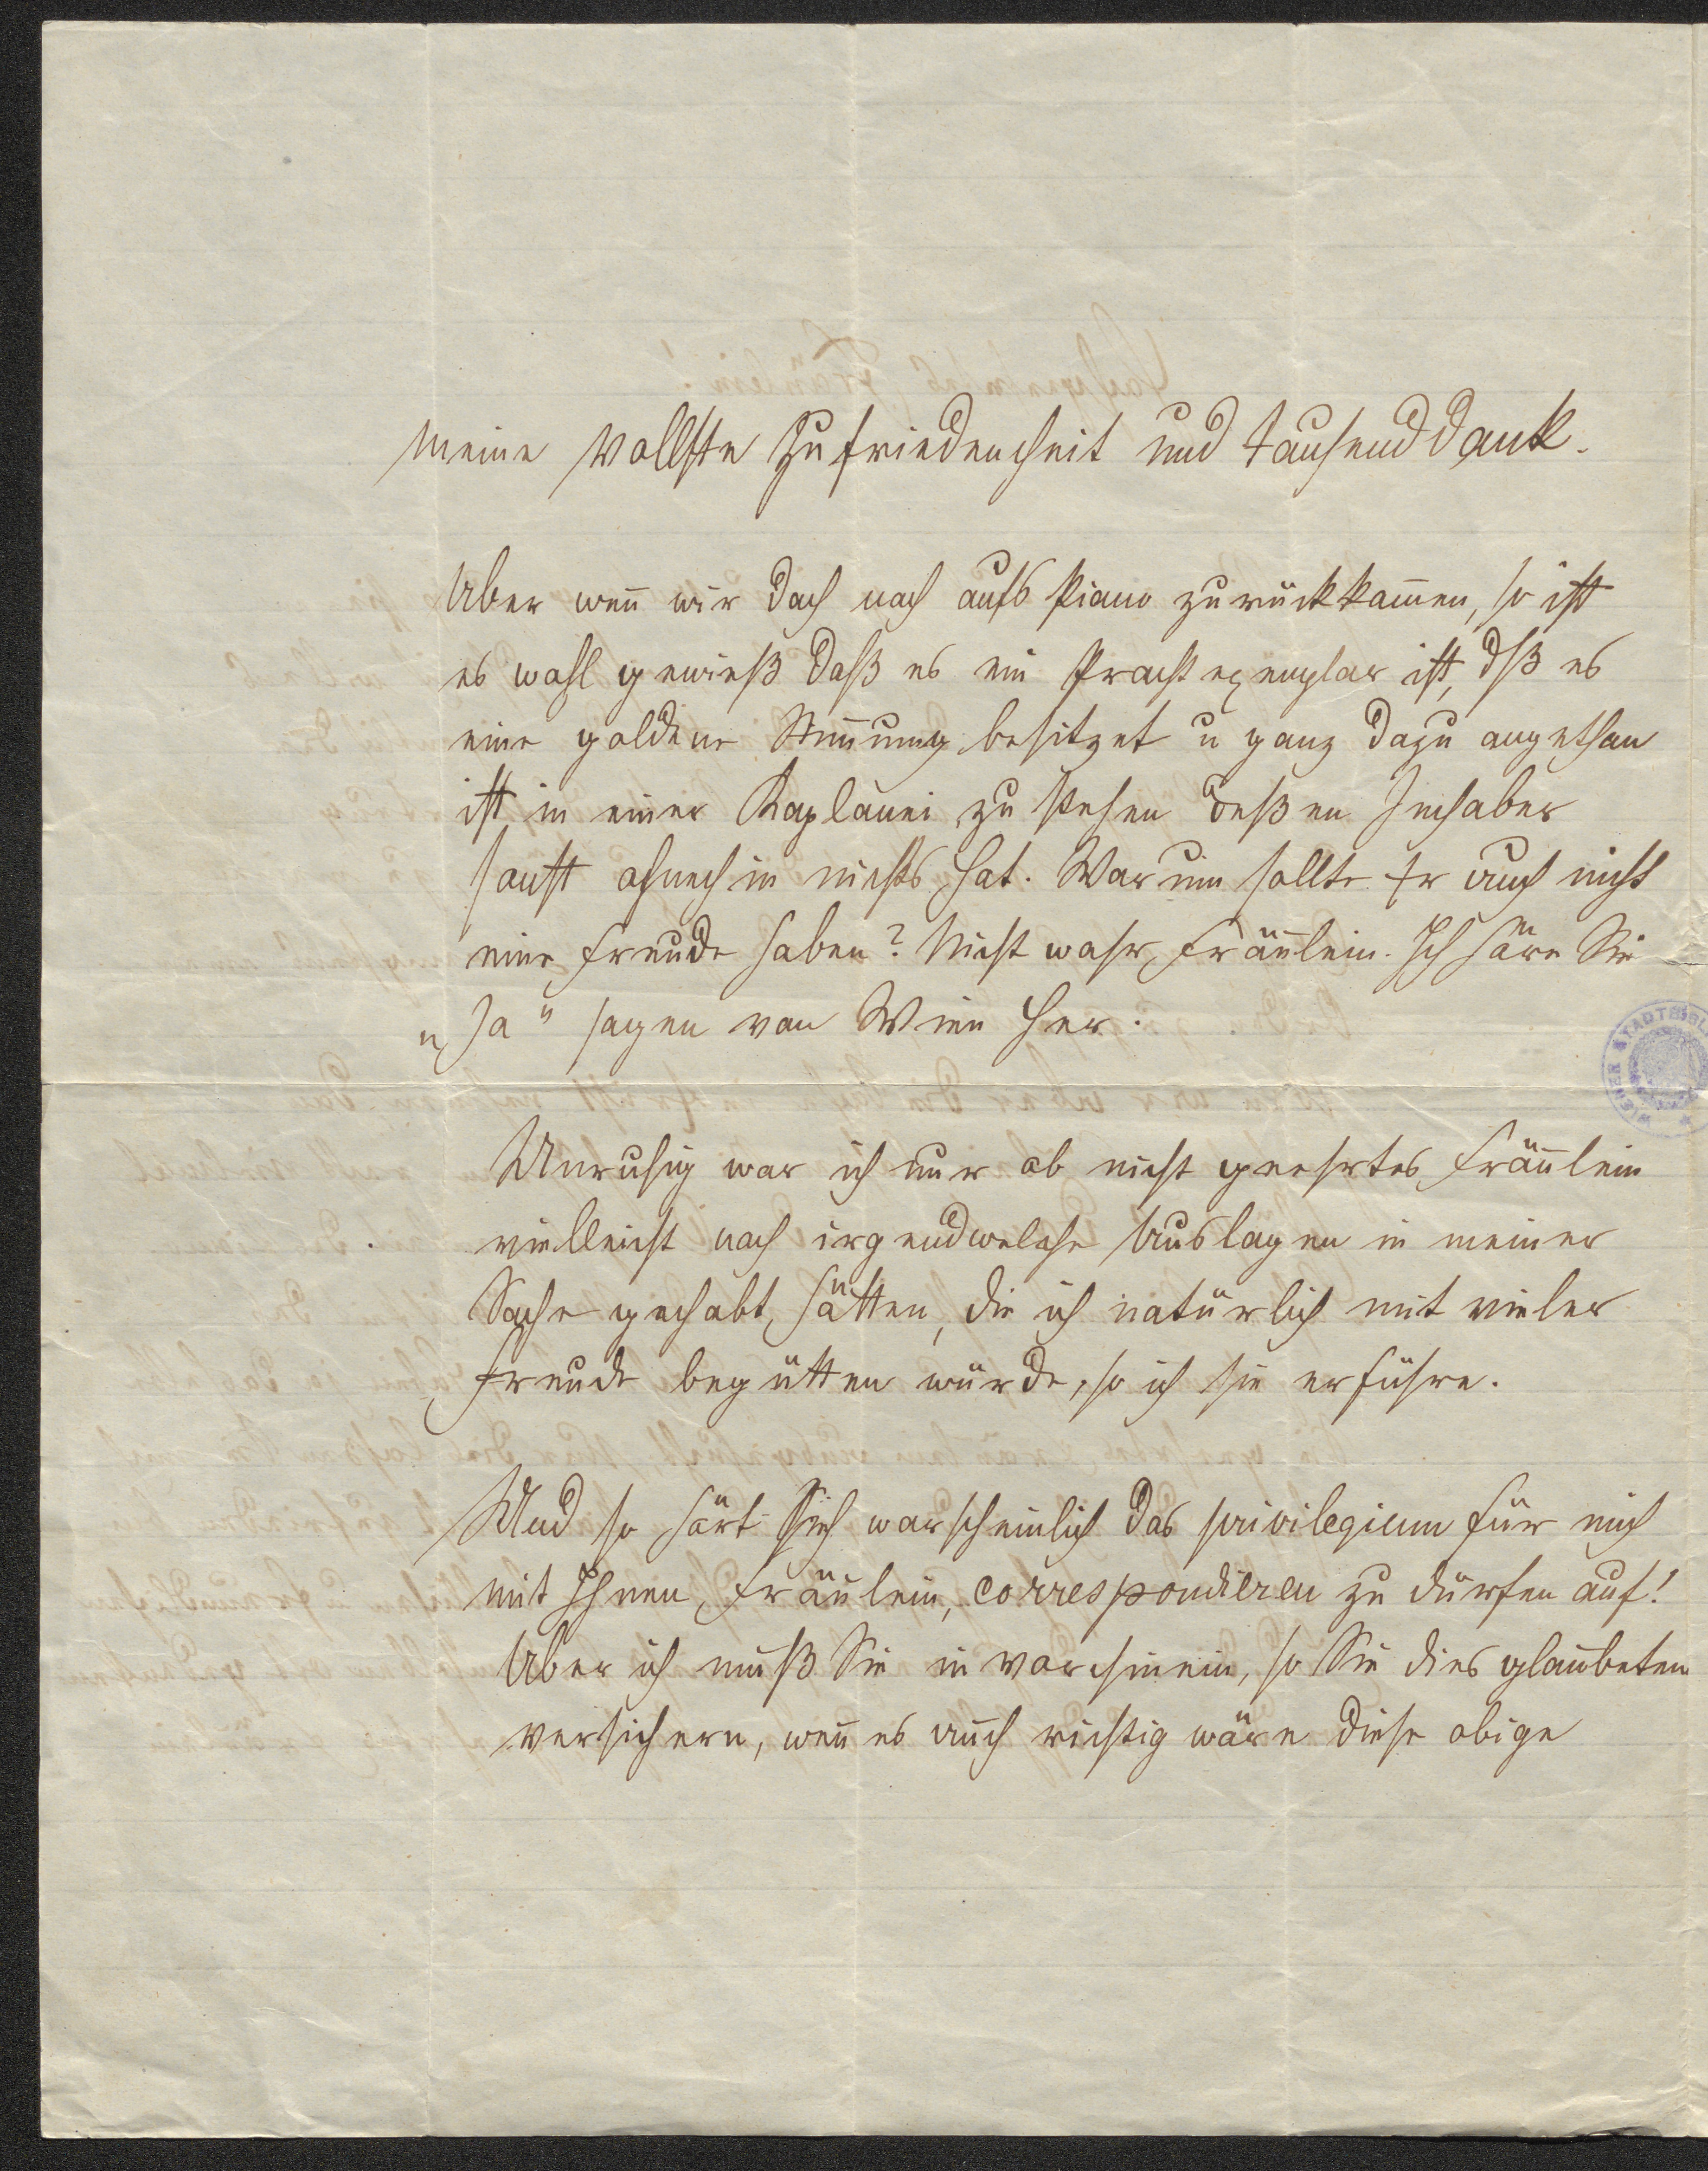 meine vollste Zufriedenheit und tausend dank.
Aber wen̄ wir doch noch aufs Piano zurückkom̄en, so ist
es wohl gewieß daß es ein Prachtexemplar ist, dß es
eine goldene Stim̄ung besitzet u ganz dazu angethan
ist in einer Kaplanei zu stehen deßen Inhaber
sonst ohnehin nichts hat. Warum sollte Er auch nicht
eine Freude haben? Nicht wahr, Fräulein. Ich höre Sie
„Ja" sagen von Wien her.
Unruhig war ich nur ob nicht geehrtes Fräulein
vielleicht noch irgendwelche Auslagen in meiner
Sache gehabt hätten, die ich natürlich mit vieler
Freude begütten würde, so ich sie erführe.
Und so hört sich warscheinlich das privilegium für mich
mit Ihnen, Fräulein, correspondieren zu dürfen auf!
Aber ich muß Sie in vorhinein, so Sie dies glaubeten
versichern, wen̄ es auch richtig wäre diese obige
WIENER STADTBIBL